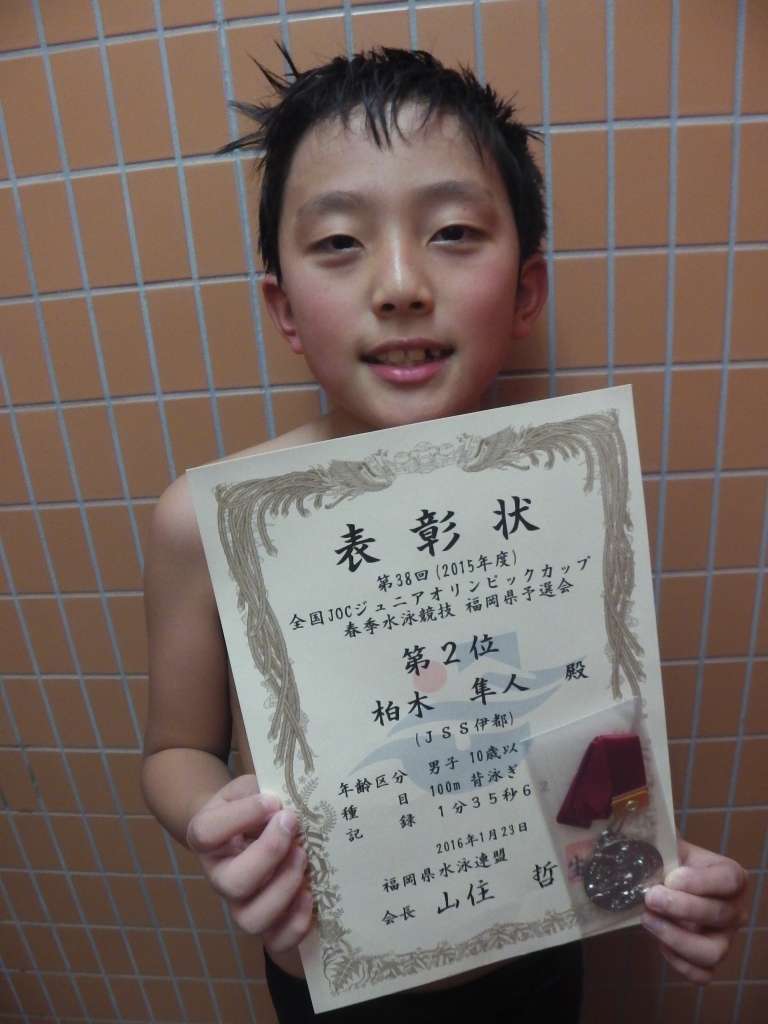 表彰状
第38回(2015年度)
全国JOCジュニアオリンピックカップ
春季水泳競技 福岡県予選会
第2位
柏木 隼人 殿
(JSS伊都)
年齢区分 男子 10歳以
種目 100m 背泳ぎ
記録 1分35秒6
2016年1月23日
福岡県水泳連盟
会長 山住 哲